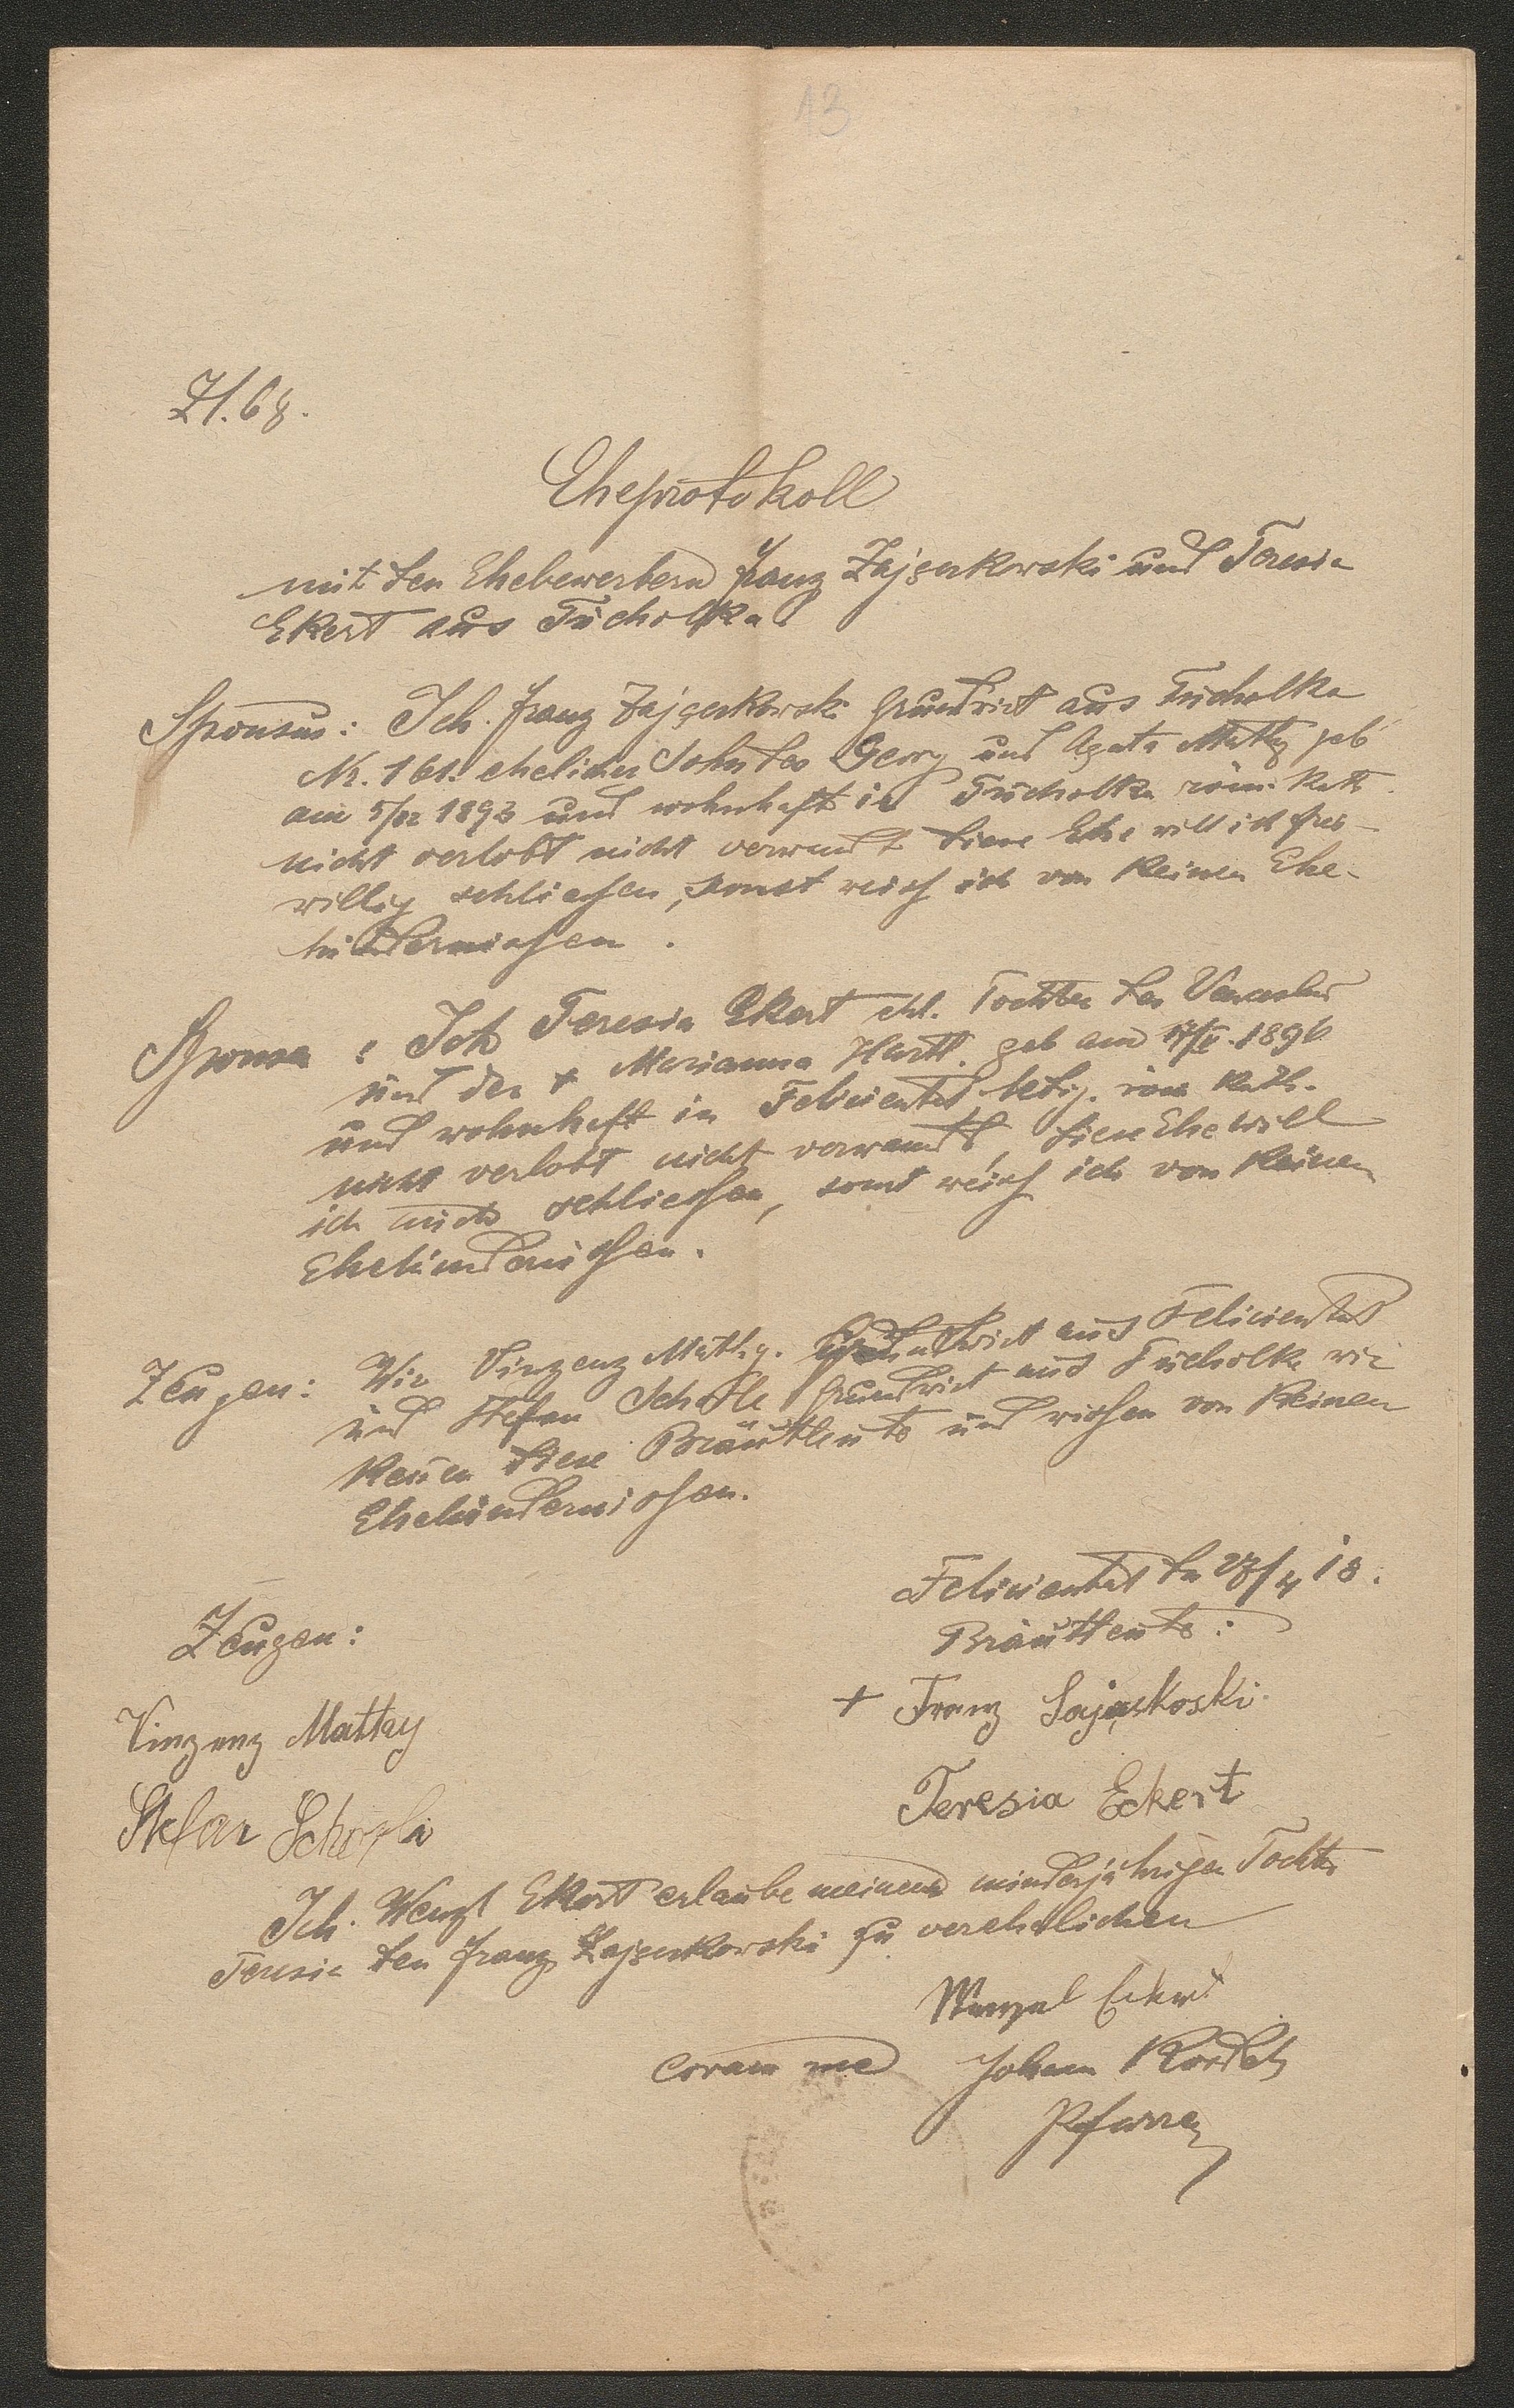 13
Zl. 68.
Eheprotokoll
mit den Ehebewerbern Franz Zajączkowski und Teresia
Ekert aus Tucholka
Sponsus: Ich Franz Zajączkowski Grundwirt aus Tucholka
Nr. 161. ehelicher Sohn des Georg und Agata Mathy geb
am 1893 und wohnhaft in Tucholka röm. kath.
nicht verlobt nicht verwandt diese Ehe will ich frei-
willig schliessen, sonst weiss ich von keinen Ehe-
hindernissen.
Sponsa: Ich Teresia Ekert ehl. Tochter des Venceslaus
und der + Marianna Hartl. geb am 1896
und wohnhaft in Felicienthal ledig. röm kath.
nicht verlobt nicht verwandt, diese Ehe will
ich auch schliessen, sonst weiss ich von keinen
Ehehindernissen.
Zeugen: Wir Vinzenz Mathy. Grundwirt aus Felicienthal
und Stefan Grundwirt aus Tucholka wir
kennen diese Brautleute und wissen von keinen
Ehehindernissen.
Felicienthal den 18.
Zeugen:
Brautleute:
Vinzenz Mathy
+ Franz Sajaskoski
Stefan
Teresia Eckert
Ich Wenzl Ekert erlaube meiner minderjährigen Tochter
Teresia den Franz Zajączkowski zu verehelichen
Wenzel Eckert
coram me Johann
Pfarrer